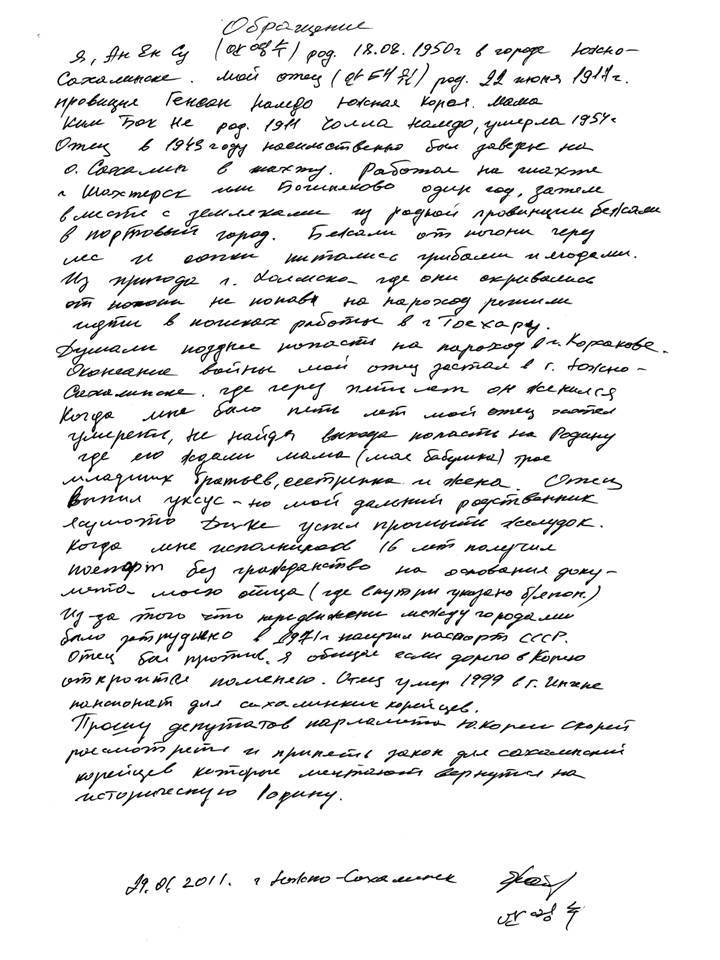 Обращение
Я, Ан Ен Су (안영수) род. 18.08.1950г в городе Южно-
Сахалинске. мой отец род. 22 июня 1917г.
провиция Генсан намдо Южная Корея. Мама
Ким Бок Не род. 1911 Чолла намдо, умерла 1954г
Отец в 1943 году насильственно был завербован на
о. Сахалин в шахту. Работал на шахте
г Шахтерск или Бошняково один год, затем
вместе с земляками из родной провинции бежали
в портовый город. Бежали от погони через
лес и сопки питались грибами и ягодами.
Из пригода г. Холмска где они скрывались
от погони не попав на пароход решили
идти в поисках работы в г Тоехару.
Думали позднее попасть на пароход в г. Корсакове.
Окончание войны мой отец застал в г. Южно-
Сахалинске. где через пять лет он женился
Когда мне было пять лет мой отец хотел
умереть, не найдя выхода попасть на Родину
где его ждали мама (моя бабушка) трое
младших братьев, сестричка и жена. Отец
выпил уксус - но мой дальний родственник
Ясумото успел промыть желудок.
Когда мне исполнилось 16 лет получил
паспорт без гражданство на основания доку-
мета моего отца (где внутри указано б/япон.)
Из-за того что передвижени между городами
было затруднено в 1971г получил паспорт СССР.
Отец был против. Я обещал если дорога в Корею
откроится поменяю. Отец умер 1999 в г. Инчхе
пансионат для сахалинких корейцев.
Прошу депутатов парламента Ю.Кореи скорей
рассмотреть и принять закон для сахалинский
корейцев которые мечтают вернутся на
историческую Родину.
29.01.2011. г Южно-Сахалинск
안영수